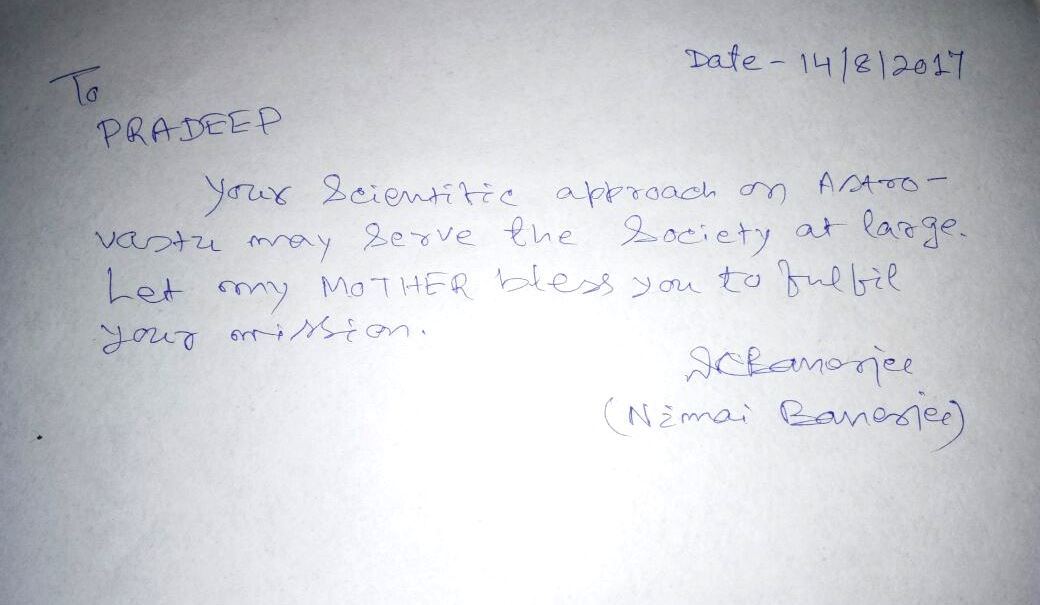 Date - 14/8/2017
To
PRADEEP
Your Scientific approach on Astro-
vastu may Serve the Society at large.
Let my MOTHER bless you to fulfil
your mission.
NCBanerjee
(Nimai Banerjee)